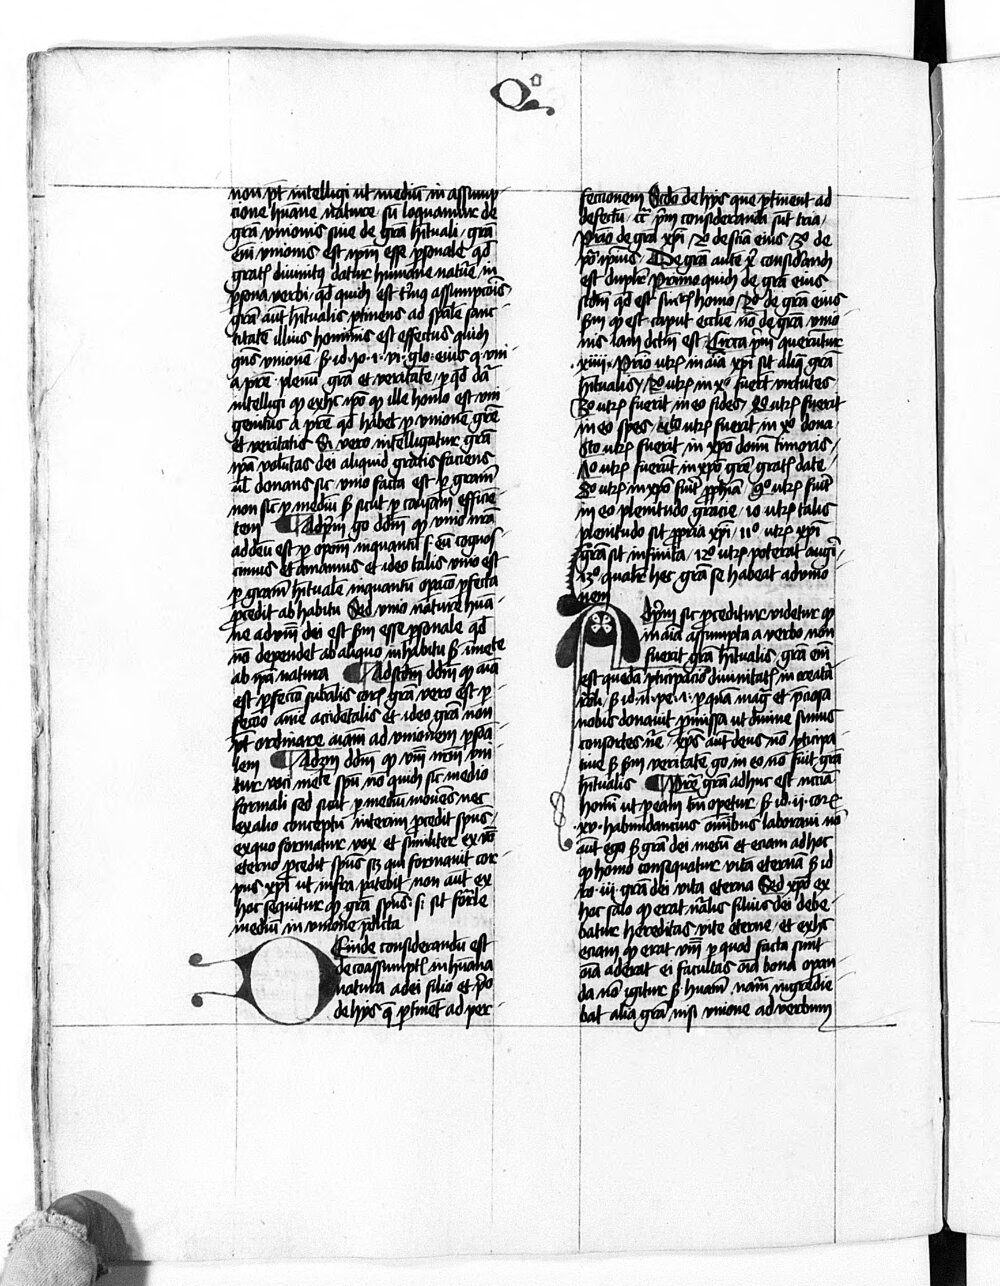 Qo
non pt intelligi ut mediu in assump
cione huane nature su loquamur de
gra unionis siue de gra hituali gra
em unionis est ipm esse psonale qd
gratis diuinitus datur humane nature in
psona verbi qd quidem est tmus assumpcois
gra aut hitualis ptinens ad spale sanc
titate illius hominis est effectus quidem
qns unione s id io i vi glo eius q uni
a pre plenu gra et veritate p qd da
intelligi qp ex hc ipo qp ille homo est uni
genitus a pre qd habet p unione gre
et veritatis Si vero intelligatur gra
ipa volutas dei aliquid gratis faciens
ul donans sic unio facta est p gram
non sic p mediu s sicut p causam efficie
tem Ad pm go ddm qp unio nra
ad deu est p opem inquantu s eu cognos
cimus et amamus et ideo talis unio est
p gram hituale inquantu opaco pfecta
pcedit ab habitu Sed unio nature hua
ne ad vm dei est sm esse psonale qd
no dependet ab aliquo in habitu s inmete
ab ipa natura Ad scdm ddm qp aia
est pfeccio subalis corp gra vero est p
feccio anie accidetalis et ideo gra non
pt ordinare aiam ad unionem psona
lem Ad 3m ddm qp vm nrm uni
tur voci mete spu no quidem sic medio
formali sed sicut p mediu mouens nec
ex alio conceptu interiori pcedit spus
ex quo formatur vox et similiter ex vo
eterno pcedit spus scs qui formauit cor
pus xpi ut infra patebit non aut ex
hoc sequitur qp gra spus s sit forle
mediu in unione pdicta
Deinde considerandu est
de coassumptis in huana
natura a dei filio et po
de hys q ptinet ad per
feccionem Scdo de hys que ptinent ad
defectu ca pm consideranda sut tria
Prio de gra xpi 2o de scia eius 3o de
po ipsius De gra aute x considerandum
est duplr Primo quidem de gra eius
scdm qd est singlis homo 2o de gra eius
sm qp est caput ecclie no de gra unio
nis iam dctm est Circa pm queruntur
xiiii Prio utrum in aia xpi sit aliq gra
hitualis 2o utrum in xo fuert virtutes
3o utrum fuerit in eo fides 4o utrum fuerit
in eo spes utrum fuerit in xo dona
6to utrum fuerit in xpo donu timoris
7o utrum fuerut in xpo gre gratis date
8o utrum in xpo fuit pphia 9o utrum fuit
in eo plenitudo gracie 10 utrum talis
plenitudo sit ppria xpi 11o utrum xpi
gra sit infinita 12o utrum poterat augi
13o qualit hec gra se habeat ad unio
nem
Ad pm sic pceditur videtur qp
in aia assumpta a verbo non
fuerit gra hitualis gra em
est queda pticipacio diuinitatis in creata
rali s id ii pe i p quam mag et pciosa
nobis donauit pmissa ut diuine simus
consortes ne xps aut deus no pticipa
tiue s sm veritatem go in eo no fuit gra
hitualis Pre gra ad hoc est nccia
homi ut p eam bn opetur s id ii cor
xv habundancius omibus laboraui no
aut ego s gra dei mecu et eciam ad hoc
qp homo consequatur vita eterna s id
ro iii gra dei vita eterna Sed xpo ex
hoc solo qp erat nalis filius dei debe
batur hereditas vite eterne et ex hc
eciam qp erat vm p quod facta sunt
oia aderat ei facultas oia bona opan
da no igitur s huam nam indigebat
bat alia gra nisi unione ad verbum